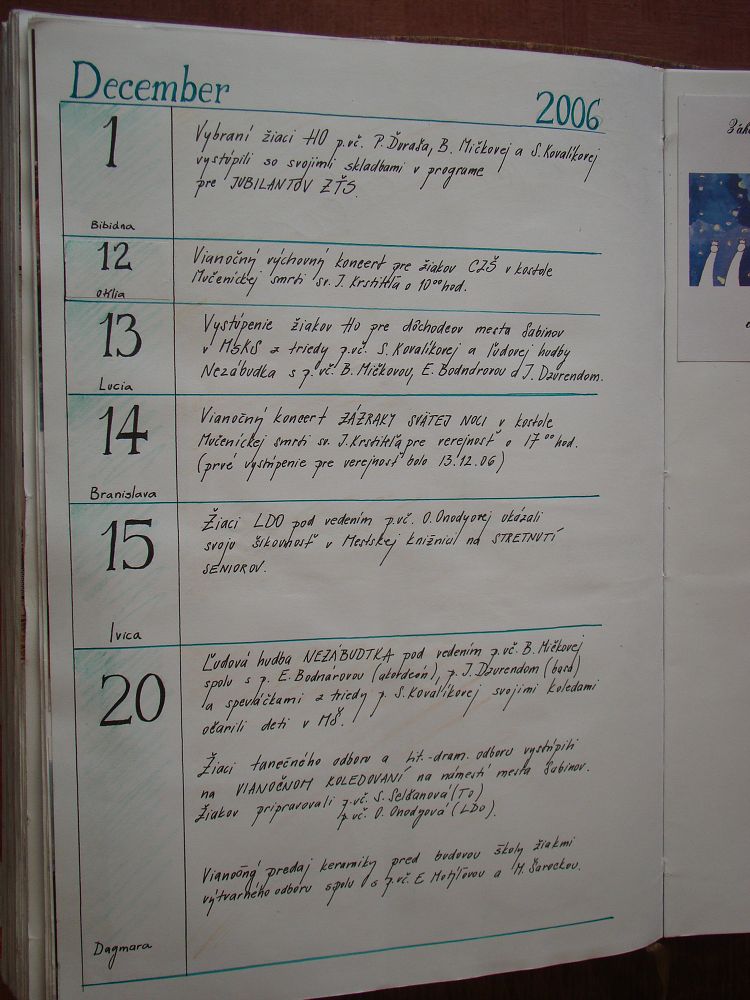 December 2006
1
Bibiána
Vybraní žiaci HO p.vč. P. Ďuraša, B. Mičkovej a S. Kovalíkovej
vystúpili so svojimi skladbami v programe
pre JUBILANTOV ZŤS.
12
Otília
Vianočný výchovný koncert pre žiakov CZŠ v kostole
Mučeníckej smrti sv. J. Krstiteľa o 10⁰⁰ hod.
13
Lucia
Vystúpenie žiakov HO pre dôchodcov mesta Sabinov
v MSKS z triedy p.vč. S. Kovalíkovej a ľudovej hudby
Nezábudka s p.vč. B. Mičkovou, E. Bodnárovou a J. Dzurendom.
14
Branislava
Vianočný koncert ZÁZRAKY SVÄTEJ NOCI v kostole
Mučeníckej smrti sv. J. Krstiteľa pre verejnosť o 17⁰⁰ hod.
(prvé vystúpenie pre verejnosť bolo 13.12.06)
15
Ivica
Žiaci LDO pod vedením p.vč. O. Onodyovej ukázali
svoju šikovnosť v Mestskej knižnici na STRETNUTÍ
SENIOROV.
20
Dagmara
Ľudová hudba NEZÁBUDTKA pod vedením p.vč. B. Mičkovej
spolu s p. E. Bodnarovou (akordeón), p. J. Dzurendom (basa)
a speváčkami z triedy p. S. Kovalíkovej svojimi koledami
očarili deti v MŠ.
Žiaci tanečného odboru a Lit.-dram. odboru vystúpili
na VIANOČNOM KOLEDOVANÍ na námestí mesta Sabinov.
Žiakov pripravovali p.vč. S. Selčanová (TO)
p.vč. O. Onodyová (LDO).
Vianočný predaj keramiky pred budovou školy žiakmi
výtvarného odboru spolu s p.vč. E. M. Šarockou.